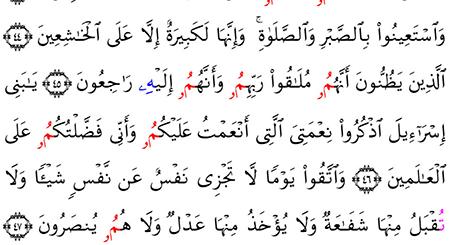 وَٱسْتَعِينُوا۟ بِٱلصَّبْرِ وَٱلصَّلَوٰةِ ۚ وَإِنَّهَا لَكَبِيرَةٌ إِلَّا عَلَى ٱلْخَٰشِعِينَ ﴿٤٤﴾
ٱلَّذِينَ يَظُنُّونَ أَنَّهُمُۥ مُلَٰقُوا۟ رَبِّهِمُۥ وَأَنَّهُمُۥ إِلَيْهِۦ رَٰجِعُونَ ﴿٤٥﴾ يَٰبَنِى
إِسْرَٰٓءِيلَ ٱذْكُرُوا۟ نِعْمَتِىَ ٱلَّتِى أَنْعَمْتُ عَلَيْكُمُۥ وَأَنِّى فَضَّلْتُكُمُۥ عَلَى
ٱلْعَٰلَمِينَ ﴿٤٦﴾ وَٱتَّقُوا۟ يَوْمًا لَّا تَجْزِى نَفْسٌ عَن نَّفْسٍ شَيْـًٔا وَلَا
تُقْبَلُ مِنْهَا شَفَٰعَةٌ وَلَا يُؤْخَذُ مِنْهَا عَدْلٌ وَلَا هُمُۥ يُنصَرُونَ ﴿٤٧﴾